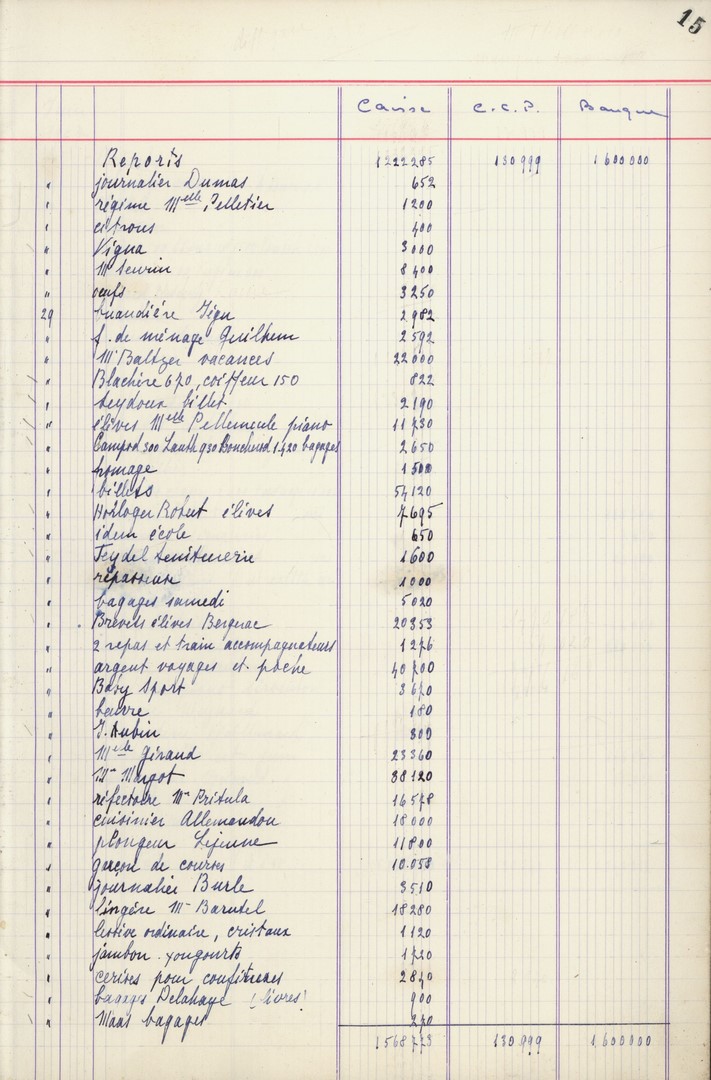 15
Caisse C.C.P. Banque
Reports 1222285 130999 1600000
" journalier Dumas 652
" régime Melle Pelletier 1200
" citrons 400
" Vigna 3000
" M 8400
" oeufs 3250
29 buandière 2982
" f. de ménage Guilhem 2592
" Mr Baltzer vacances 22000
" Blachère 670, coiffeur 150 822
" Seydoux billet 2190
" élèves Melle Pellemeule piano 11730
" Campod 300 Lauth 930 Boucherid 1420 bagages 2650
" fromage 1500
" billets 54120
" Horloger Robert élèves 7695
" idem école 650
" Teydel teinturerie 1600
" repasseuse 1000
" bagages samedi 5020
" Brevets élèves Bergerac 20353
" 2 repas et train accompagnateurs 1276
" argent voyages et poche 40700
" Basy Sport 3670
" beurre 180
" J. Aubin 800
" Melle Giraud 23360
" Me Margot 38120
" réfectoire Me Pritula 16578
" cuisinier Allemandou 18000
" plongeur Lejeune 11800
" garçon de courses 10.058
" journalier Burle 3510
" lingère Me Barutel 18280
" lessive ordinaire, cristaux 1120
" jambon. yougourts 1720
" cerises pour confitures 2840
" bagages Delahaye (livres) 900
" Maas bagages 270
1568773 130999 1600000